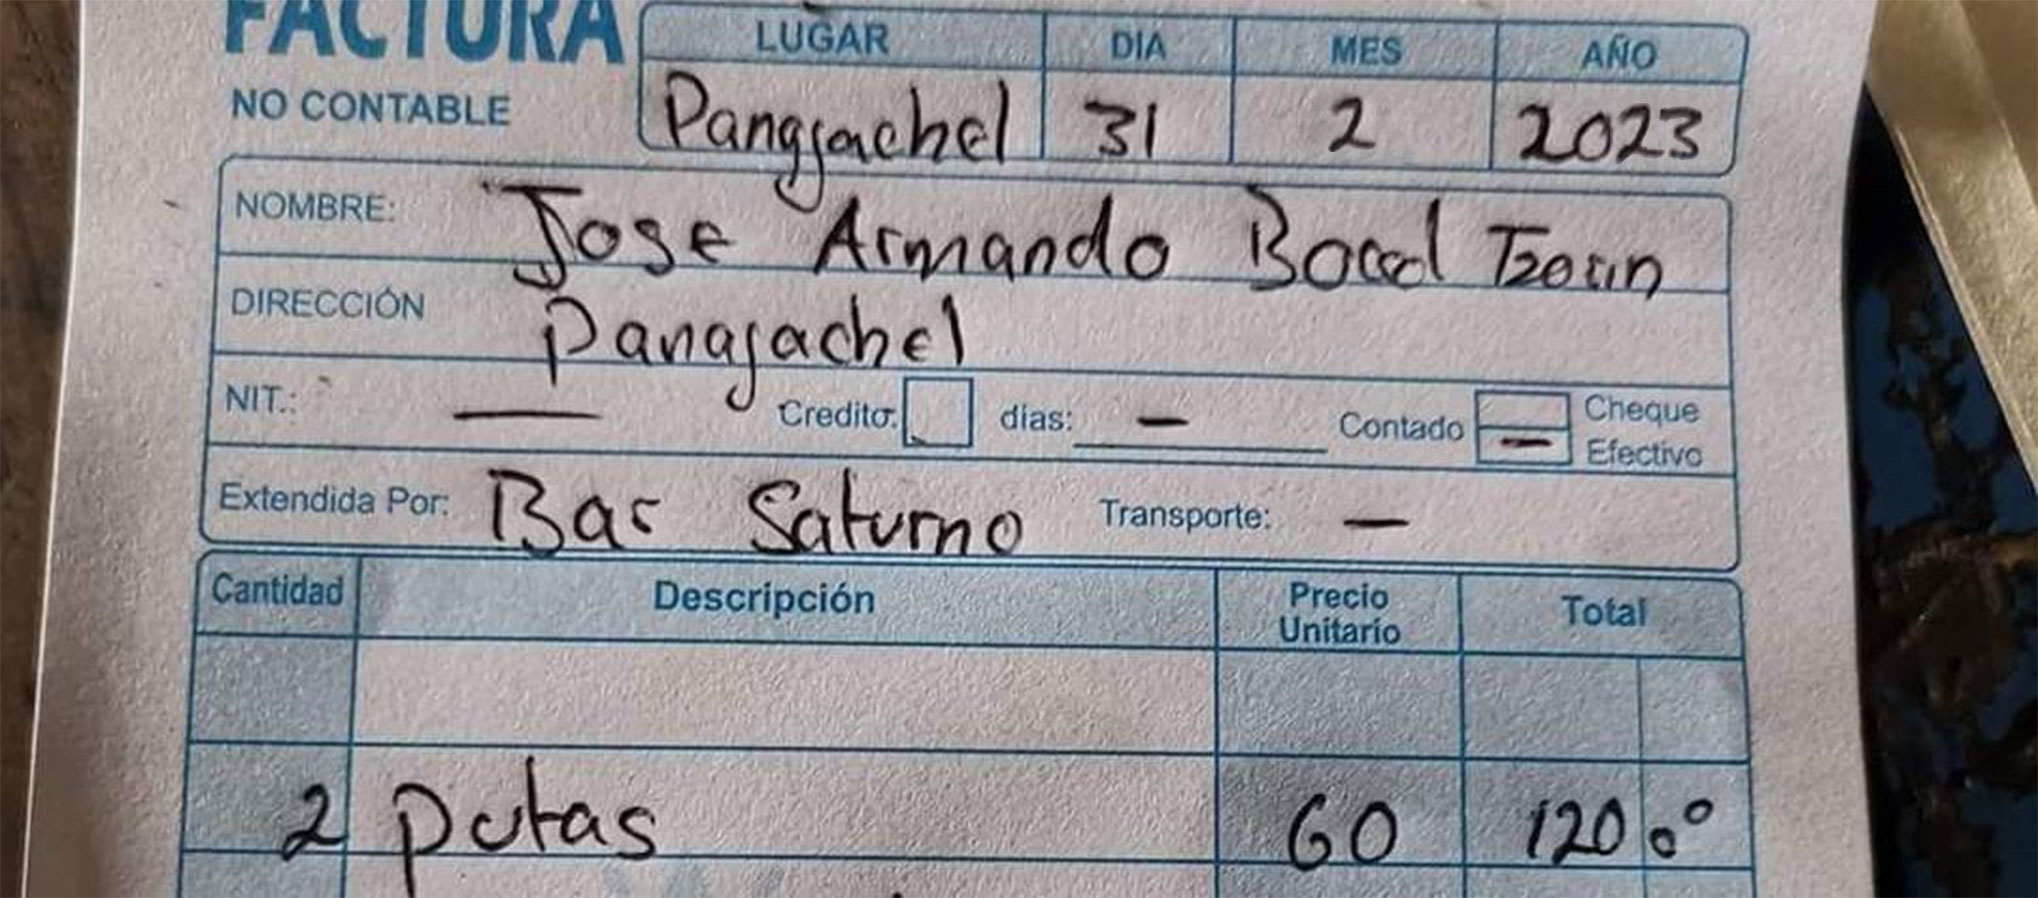 FACTURA
NO CONTABLE
LUGAR DIA MES AÑO
Pangjachel 31 2 2023
NOMBRE: Jose Armando Bocel Tzorin
DIRECCIÓN Panajachel
NIT.: — Credito: días: — Contado Cheque
— Efectivo
Extendida Por: Bar Saturno Transporte: —
Cantidad Descripción Precio Unitario Total
2 putas 60 120.00